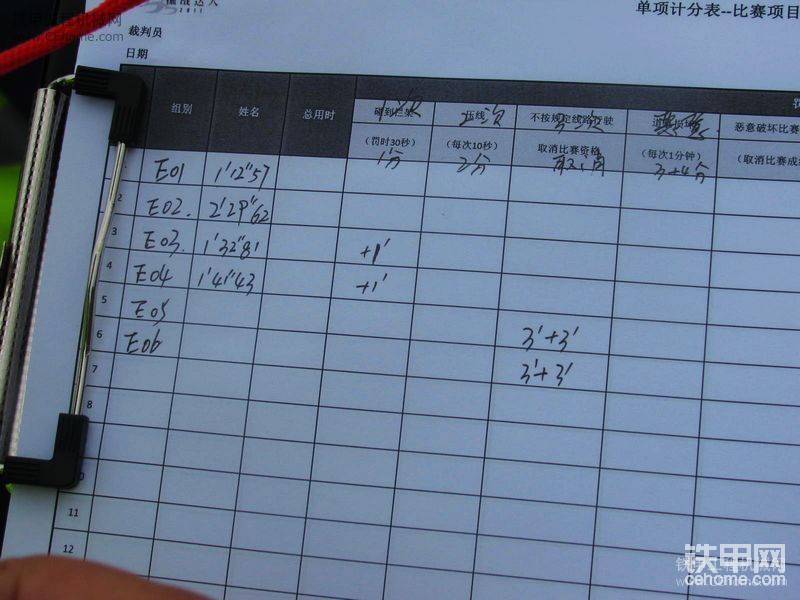 单项计分表--比赛项目
2011
裁判员
日期
组别 姓名 总用时 碰到栏架 压线 不按规定线路行驶 恶意破坏比赛
1次 2次 3次
(罚时30秒) (每次10秒) 取消比赛资格 (每次1分钟) (取消比赛成
1分 2分 3+4分
1 E01 1'12"57
2 E02. 2'29"62
3 E03. 1'32"81 +1'
4 E04 1'41"43 +1'
5 E05
6 E06 3'+3'
7 3'+3'
8
11
12
铁甲网
cehome.com